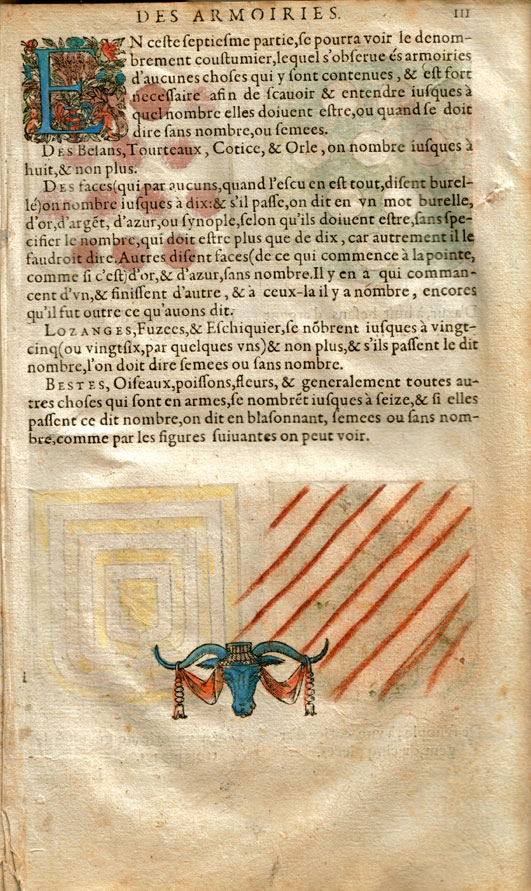 DES ARMOIRIES. III
EN ceste septiesme partie, se pourra voir le denom-
brement coustumier, lequel s'obserue és armoiries
d'aucunes choses qui y sont contenues, & est fort
necessaire afin de scauoir & entendre iusques à
quel nombre elles doiuent estre, ou quand se doit
dire sans nombre, ou semees.
DES Besans, Tourteaux, Cotice, & Orle, on nombre iusques à
huit, & non plus.
DES faces (qui par aucuns, quand l'escu en est tout, disent burel-
lé) on nombre iusques à dix: & s'il passe, on dit en vn mot burelle,
d'or, d'argẽt, d'azur, ou synople, selon qu'ils doiuent estre, sans spe-
cifier le nombre, qui doit estre plus que de dix, car autrement il le
faudroit dire. Autres disent faces (de ce qui commence à la pointe,
comme si c'est) d'or, & d'azur, sans nombre. Il y en a qui comman-
cent d'vn, & finissent d'autre, & à ceux-la il y a nõmbre, encores
qu'il fut outre ce qu'auons dit.
LOZANGES, Fuzees, & Eschiquier, se nõbrent iusques à vingt-
cinq (ou vingtsix, par quelques vns) & non plus, & s'ils passent le dit
nombre, l'on doit dire semees ou sans nombre.
BESTES, Oiseaux, poissons, fleurs, & generalement toutes au-
tres choses qui sont en armes, se nombrẽt iusques à seize, & si elles
passent ce dit nombre, on dit en blasonnant, semees ou sans nom-
bre, comme par les figures suiuantes on peut voir.